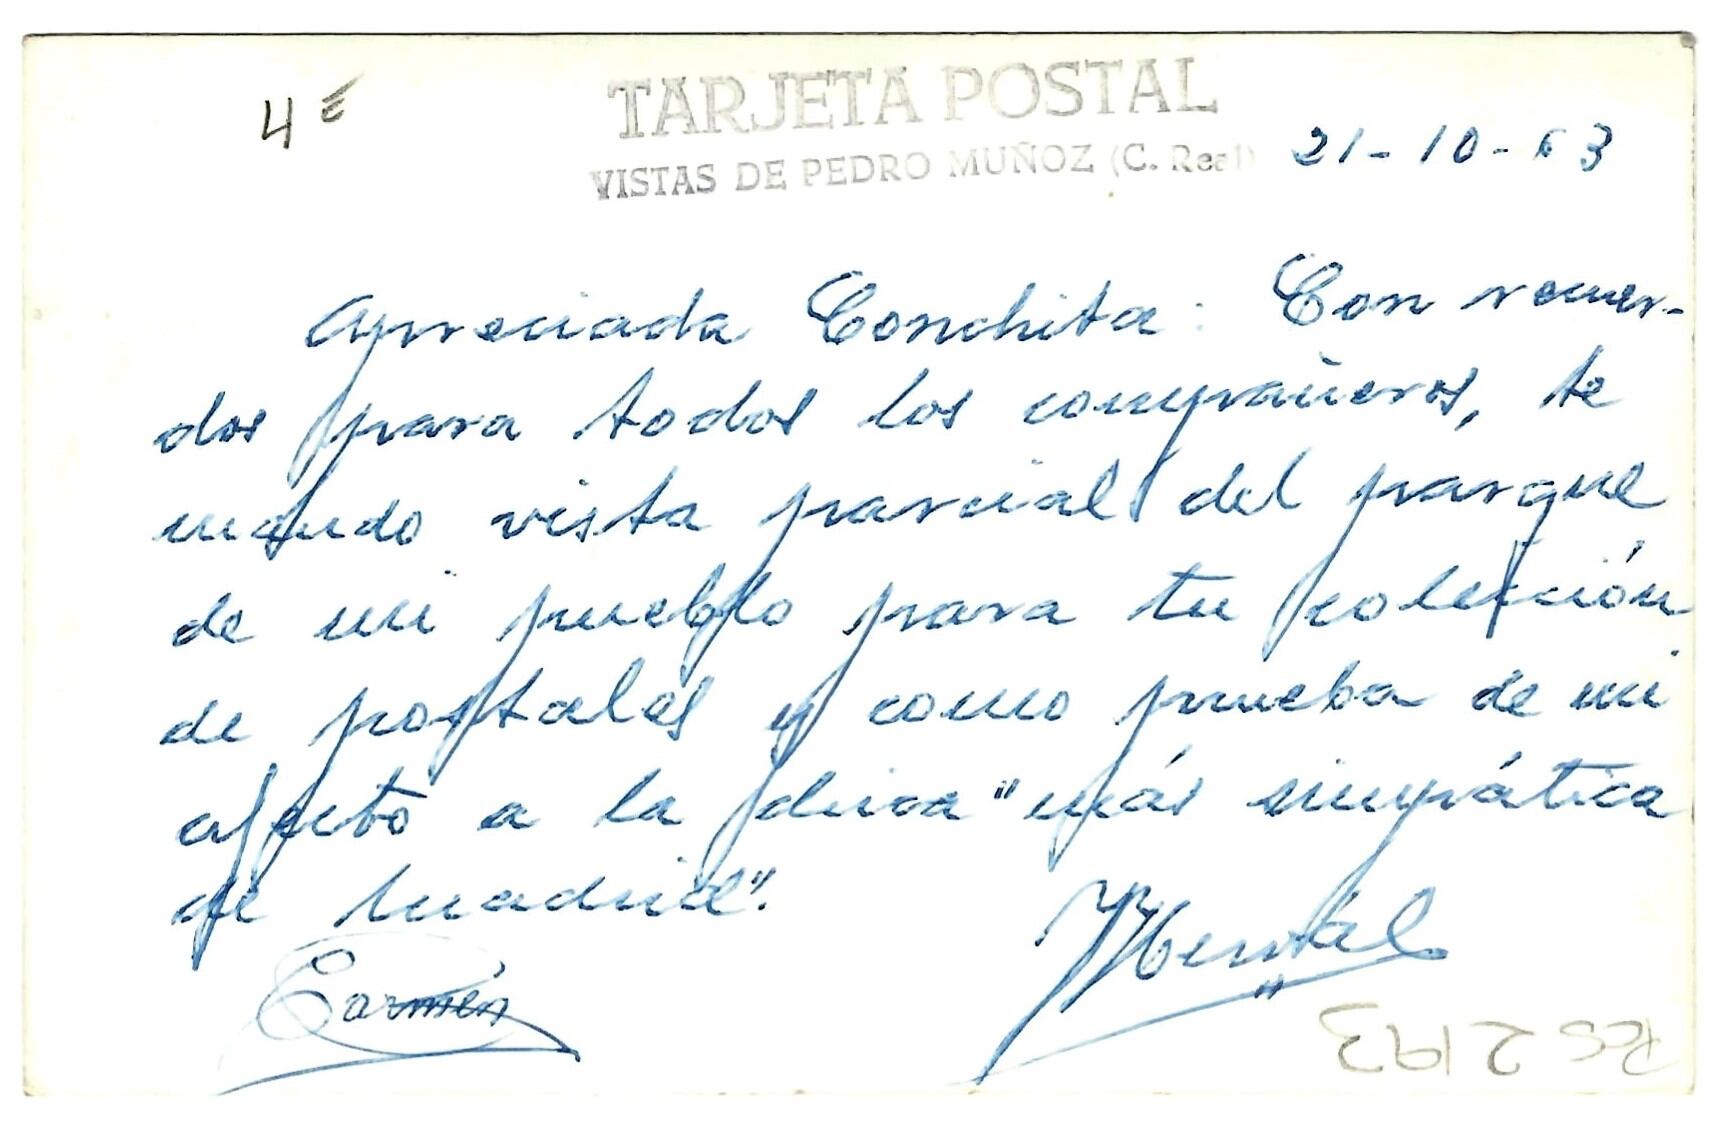 4€
TARJETA POSTAL
VISTAS DE PEDRO MUÑOZ (C. Real)
21-10-63
Apreciada Conchita: Con recuer-
dos para todos los compañeros, te
mando vista parcial del parque
de mi pueblo para tu colección
de postales y como prueba de mi
afecto a la chica "más simpática
de Madrid".
Carmen
Pos 2193